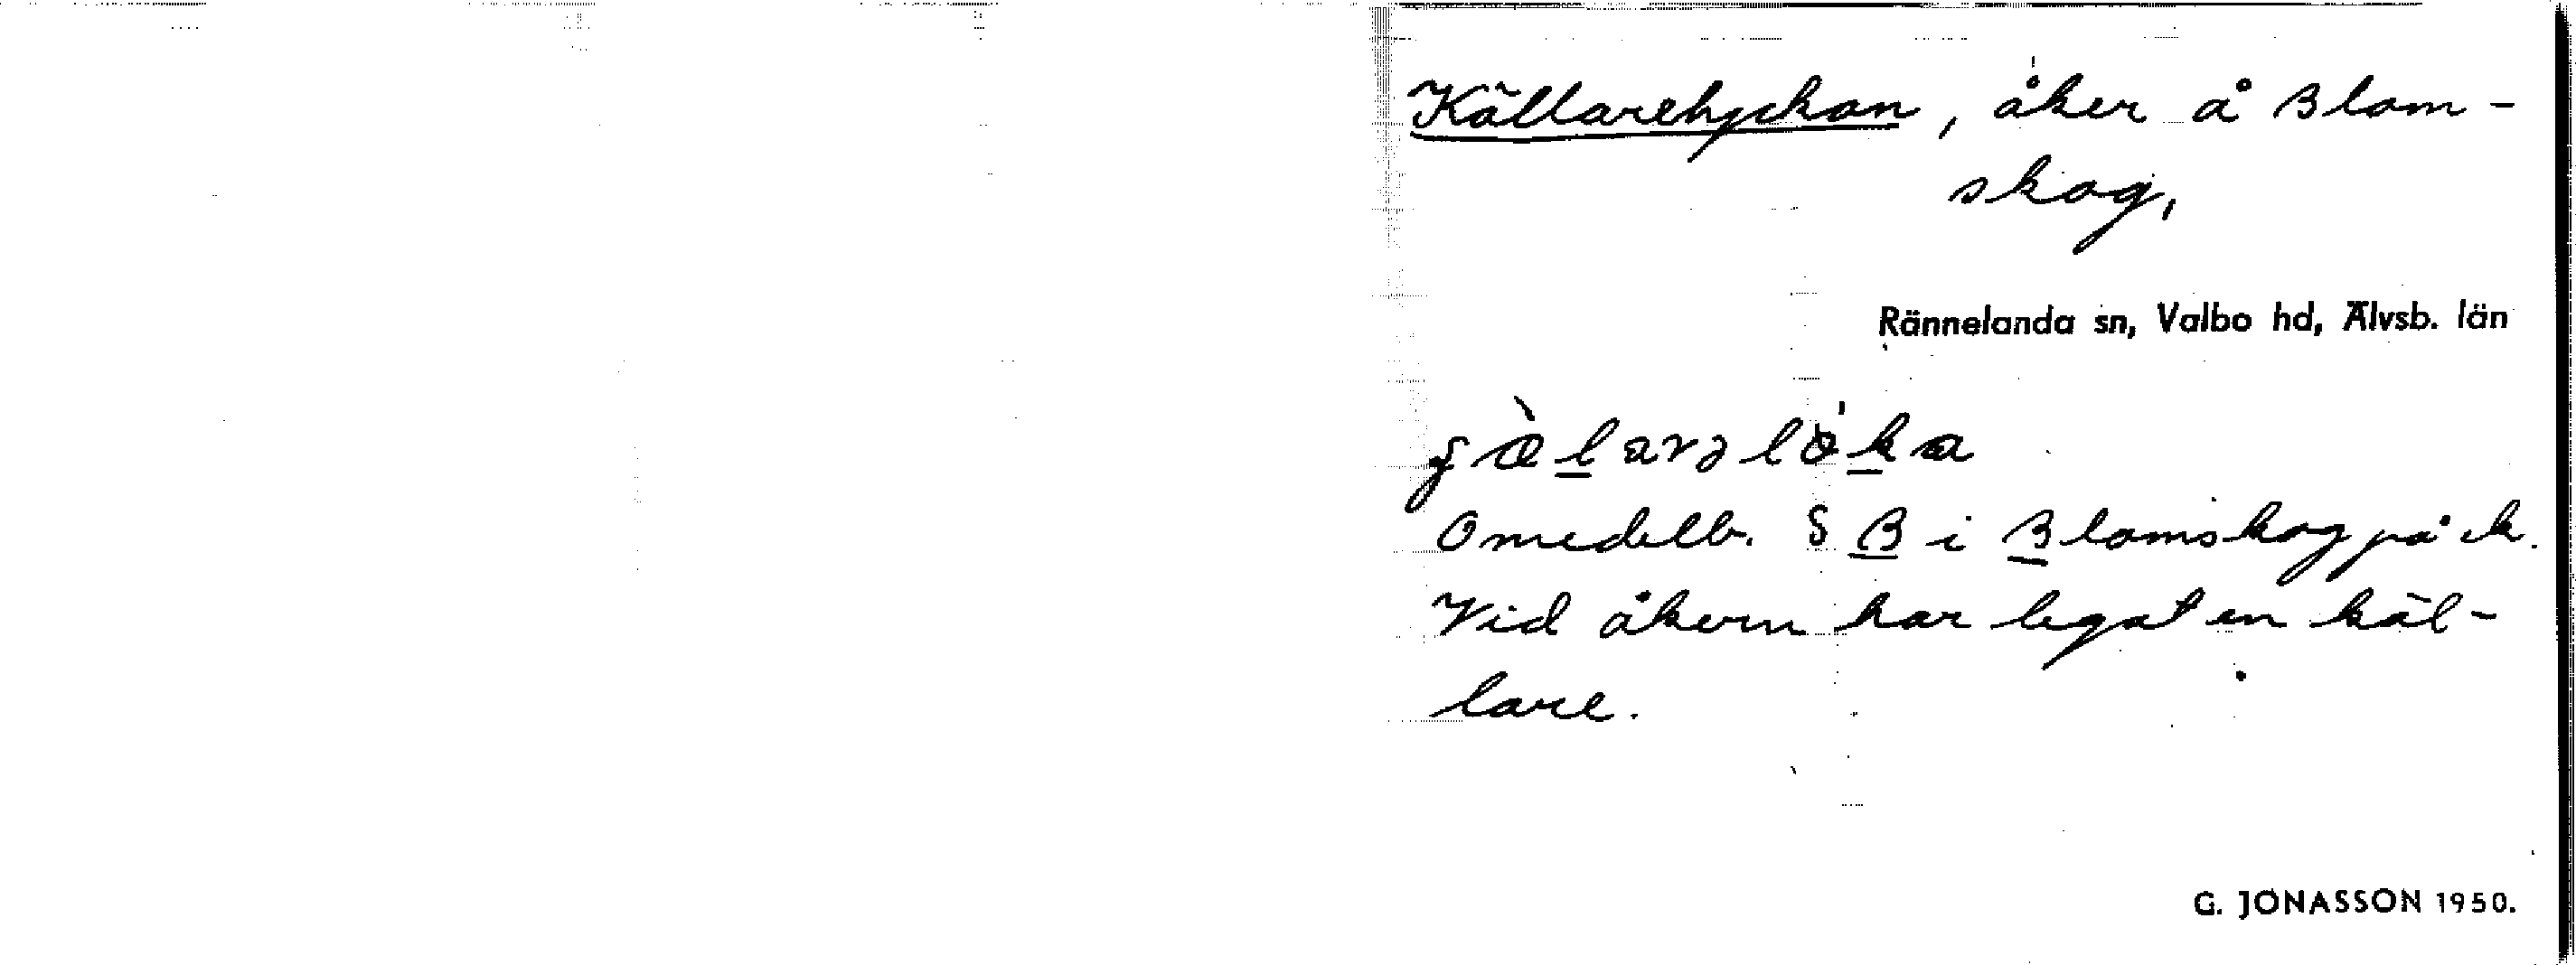 Källarelyckan, åker å Blom-
skog,
Rännelanda sn, Valbo hd, Älvsb. län
Omedelb. S B i Blomskog på ek.
Vid åkern har legat en käl-
lare.
G. JONASSON 1950.